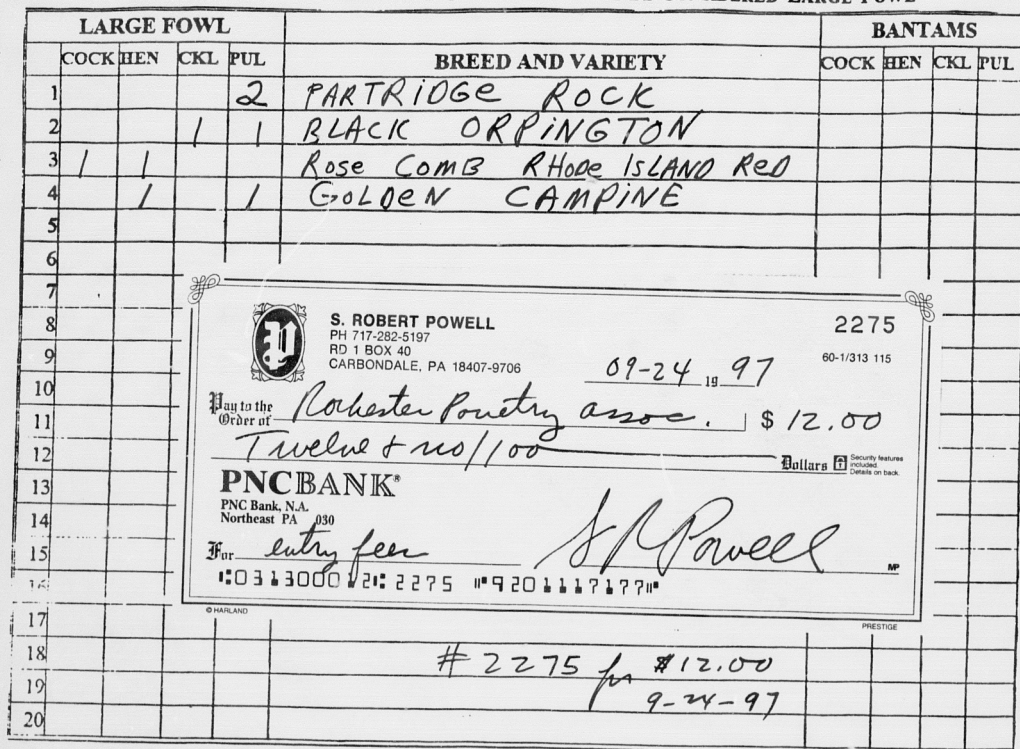 LARGE FOWL BANTAMS
COCK HEN CKL PUL BREED AND VARIETY COCK HEN CKL PUL
1 2 PARTRIDGE ROCK
2 1 1 BLACK ORPINGTON
3 1 1 Rose COMB RHODE ISLAND RED
4 1 1 GOLDEN CAMPINE
5
6
7
8
9
10
11
12
13
14
15
16
17
18
19
20
S. ROBERT POWELL 2275
PH 717-282-5197
RD 1 BOX 40 60-1/313 115
CARBONDALE, PA 18407-9706
09-24 19 97
Pay to the
Order of Rochester Poultry assoc. $ 12.00
Twelve & no/100 Dollars Security features
included.
Details on back.
PNCBANK®
PNC Bank, N.A.
Northeast PA 030
For entry fees S R Powell
MP
⑆031300012⑆ 2275 ⑈9201117177⑈
© HARLAND PRESTIGE
# 2275 for $12.00
9-24-97